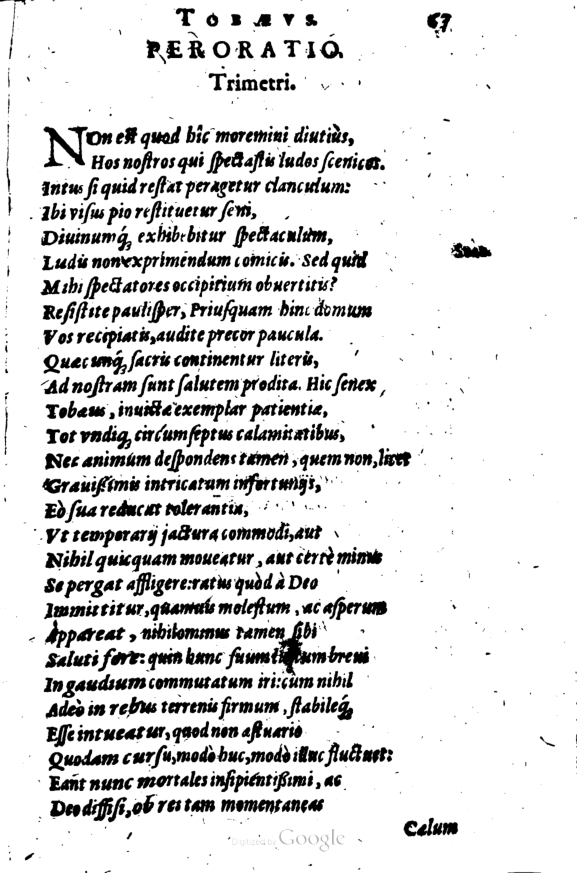 TOBÆVS. 67
PERORATIO.
Trimetri.
NOn est quod hîc moremini diutiùs,
Hos nostros qui spectastis ludos scenicos.
Intus si quid restat peragetur clanculum:
Ibi visus pio restituetur seni,
Diuinumq́ꝫ exhibebitur spectaculum,
Ludis non exprimendum comicis. Sed quid
Mihi spectatores occipitium obuertitis?
Resistite paulisper, Priusquam hinc domum
Vos recipiatis, audite precor paucula.
Quæcunq́ꝫ sacris continentur literis,
Ad nostram sunt salutem prodita. Hic senex,
Tobæus, inuictæ exemplar patientiæ,
Tot vndiq́ꝫ circumseptus calamitatibus,
Nec animum despondens tamen, quem non, licet
Grauißimis intricatum infortunijs,
Eò sua reducat tolerantia,
Vt temporarij jactura commodi, aut
Nihil quicquam moueatur, aut certè minus
Se pergat affligere: ratus quòd à Deo
Immittitur, quamuis molestum, ac asperum
Appareat, nihilominus tamen sibi
Saluti fore: quin hunc suum breui
In gaudium commutatum iri: cùm nihil
Adeò in rebus terrenis firmum, stabileq́ꝫ
Esse intueatur, quod non æstuario
Quodam cursu, modò huc, modò illuc fluctuet:
Eant nunc mortales insipientißimi, ac
Deo diffisi, ob res tam momentaneas
Cælum
Digitized by Google